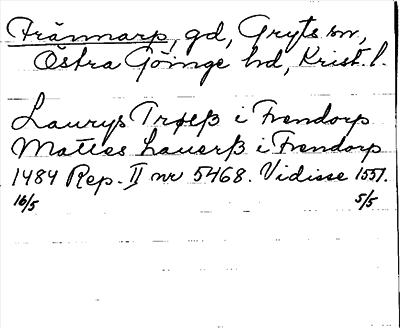 Främmarp, gd, Gryts sn,
Östra Göinge hd, Krist. l.
Laurys Trøelß i Frendorp
Mattes Lauerß i Frendorp
1484 Rep. II nr 5468. Vidisse 1551.
16/5 5/5